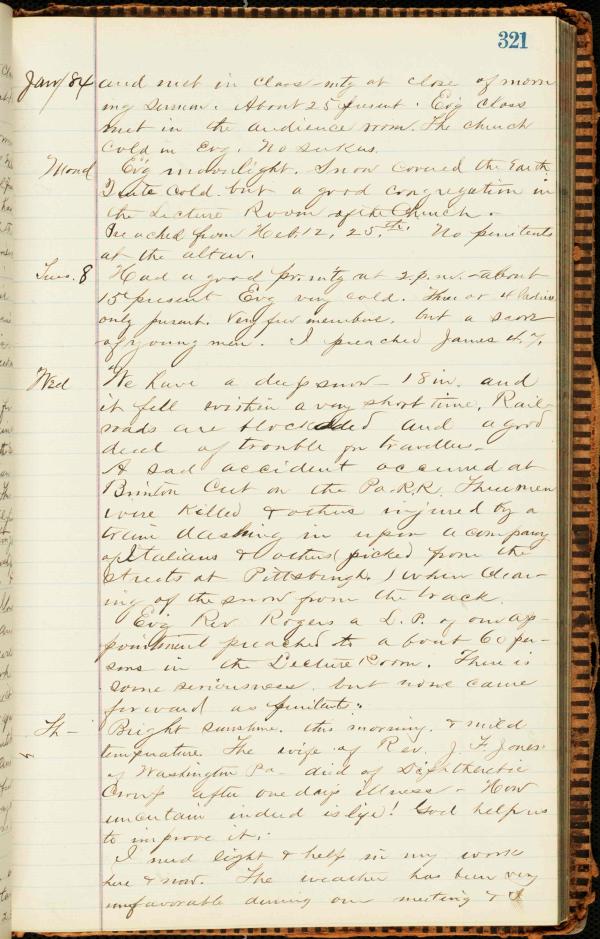 321
Jan/84 and met in class-mtg at close of morn
ing sermon. About 25 present. Evg class
met in the audience room. The church
cold in Evg. No seekers.
Mond Evg moonlight. Snow covered the Earth
Quite cold. but a good congregation in
the Lecture Room of the Church.
Preached from Heb. 12, 25th. No penitents
at the altar.
Tues. 8 Had a good pr. mtg at 2. p.m. about
15 present Evg very cold. Three or 4 ladies
only present. Very few members, but a score
of young men. I preached James 4.7.
Wed We have a deep snow - 18 in. and
it fell within a very short time. Rail-
roads are blockaded and a good
deal of trouble for travellers.
A sad accident occurred at
Brinton Cut on the Pa. R.R. Three men
were killed & others injured by a
train dashing in upon a company
of Italians & others (picked from the
streets at Pittsburgh,) when clear-
ing of the snow from the track.
Evg Rev Rogers a L. P. of our ap-
pointment preached to about 60 per-
sons in the Lecture Room. There is
some seriousness, but none came
forward as penitents.
Th- Bright sunshine, this morning, & mild
temperature. The wife of Rev. J. F. Jones
of Washington Pa- died of Diphtheretic
Croup after one days illness - How
uncertain indeed is life! God help us
to improve it.
I need light & help in my work
here & now. The weather has been very
unfavorable during our meeting & I